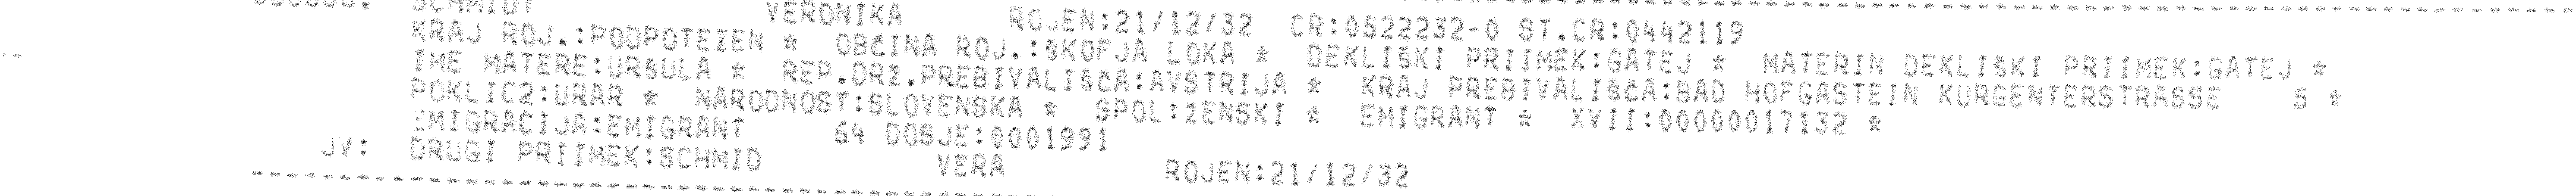 SCHMIDT VERONIKA ROJEN:21/12/32 CR:0522232-0 ST.CR:0442119
KRAJ ROJ.:PODPOTEZEN * OBČINA ROJ.:ŠKOFJA LOKA * DEKLIŠKI PRIIMEK:GATEJ * MATERIN DEKLIŠKI PRIIMEK:GATEJ *
IME MATERE:URŠULA * REP.DRŽ.PREBIVALIŠČA:AVSTRIJA * KRAJ PREBIVALIŠČA:BAD HOFGASTEIN KURGENTERSTRASSE 5 *
POKLIC2:URAR * NARODNOST:SLOVENSKA * SPOL:ŽENSKI * EMIGRANT * XVII:0000017132 *
EMIGRACIJA:EMIGRANT 64 DOSJE:0001991
JV: DRUGI PRIIMEK:SCHMID VERA ROJEN:21/12/32